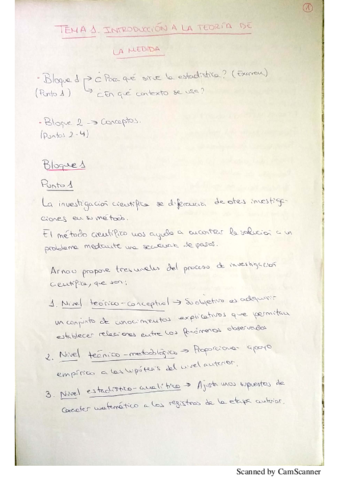 TEMA 1. INTRODUCCIÓN A LA TEORÍA DE
LA MEDIDA
- Bloque 1 → ¿Para qué sirve la estadística? (Examen)
(Punto 1) ↳ ¿En qué contexto se usa?
- Bloque 2 → Conceptos.
(Puntos 2-4)
Bloque 1
Punto 1
La investigación científica se diferencia de otras investiga-
ciones en su método.
El método científico nos ayuda a encontrar la solución a un
problema mediante una secuencia de pasos.
Arnau propone tres niveles del proceso de investigación
científica, que son:
1. Nivel teórico-conceptual → Su objetivo es adquirir
un conjunto de conocimientos explicativos que permitan
establecer relaciones entre los fenómenos observados
2. Nivel técnico-metodológico → Proporcionar apoyo
empírico a las hipótesis del nivel anterior.
3. Nivel estadístico-analítico → Ajustamos supuestos de
carácter matemático a los registros de la etapa anterior.
Scanned by CamScanner